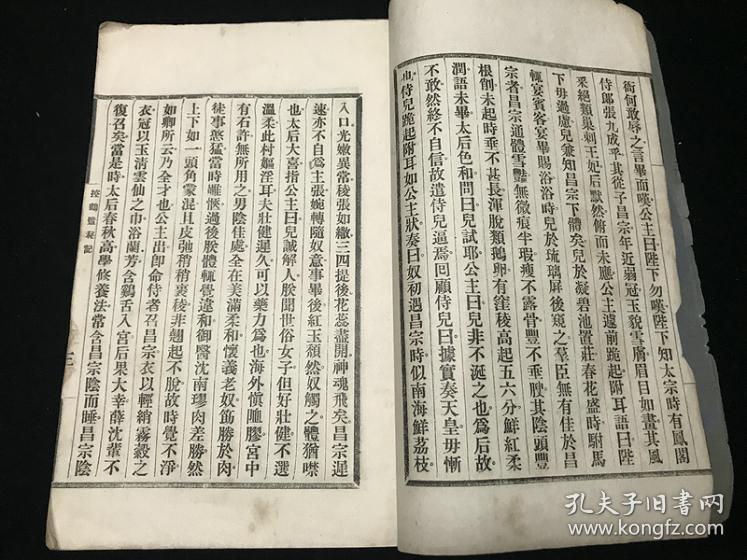 衒何敢辱之言畢而嘆公主曰陛下勿嘆陛下知太宗時有鳳閣
侍郎張九成乎其從子昌宗年近弱冠玉貌雪膚眉目如畫其風
采絕類巢剌王妃后默然俯而未應公主遽前跪起附耳語曰陛
下毋過慮兒兼知昌宗下體矣兒於凝碧池置莊春花盛時駙馬
輒宴賓客宴畢賜浴浴時兒於琉璃屏後窺之羣臣無有佳於昌
宗者昌宗通體雪豔無微痕半瑕瘦不露骨豐不垂腴其陰頭豐
根削未起時垂不甚長渾脫類鵝卵有窪稜高起五六分鮮紅柔
潤語未畢太后色和問曰兒試耶公主曰兒非不涎之也爲后故
不敢然終不自信故遣侍兒逼焉回顧侍兒曰據實奏天皇毋慚
也侍兒跪起附耳如公主狀奏曰奴初遇昌宗時似南海鮮荔枝
入口光嫩異常稜張如繖三四提後花蕊盡開神魂飛矣昌宗遲
速亦不自爲主張婉轉隨奴意事畢後紅玉頹然奴觸之體猶噤
也太后大喜指公主曰兒誠解人朕聞世俗女子但好壯健不選
溫柔此村嫗淫耳夫壯健遲久可以藥力爲也海外愼䘆膠宮中
有石許無所用之男陰佳處全在美滿柔和懷義老奴筋勝於肉
徒事憊猛當時雖愜過後朕體輒覺違和御醫沈南璆肉差勝然
上下如一頭角蒙混且皮弛稍稍裹稜非翹起不脫故時覺不淨
如卿所云乃全才也公主出卽命侍者召昌宗衣以輕綃霧縠之
衣冠以玉清雲仙之巾浴蘭芳含鷄舌入宮后果大幸薛沈輩不
復召矣當是時太后春秋高學修養法常含昌宗陰而睡昌宗陰
控鶴監秘記
三
孔夫子旧书网
www.kongfz.com